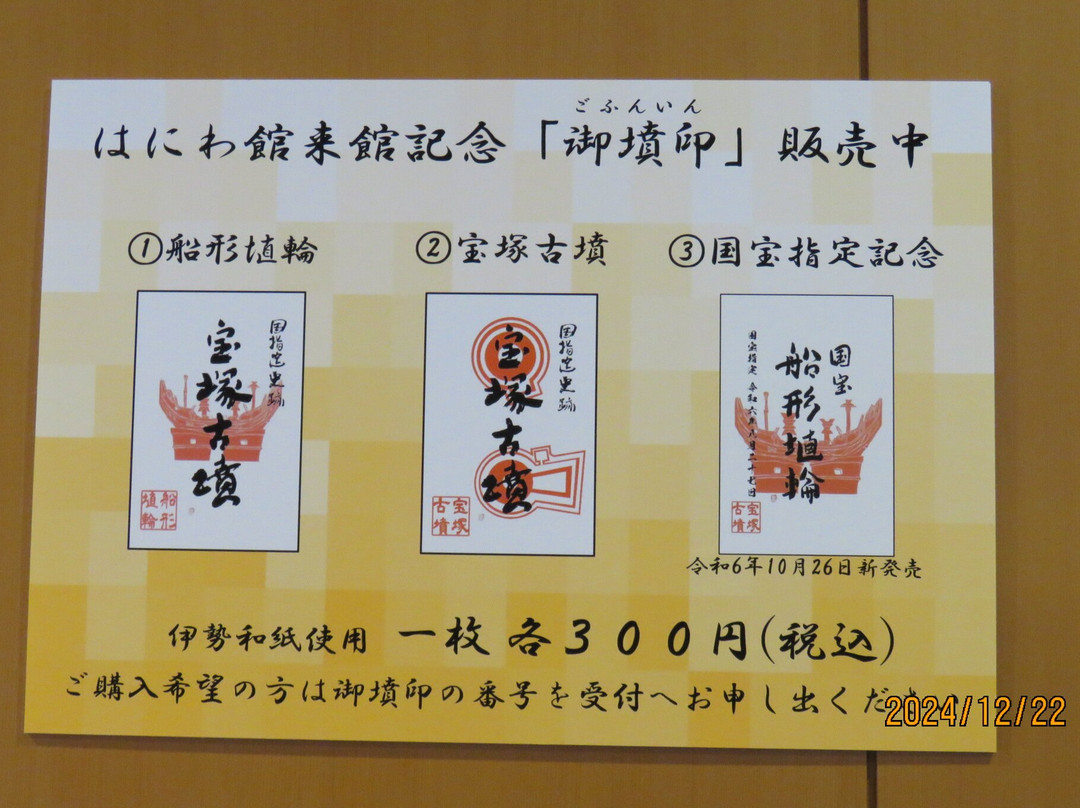 ごふんいん
はにわ館来館記念「御墳印」販売中
①船形埴輪
国指定史跡
宝塚古墳
船形埴輪
②宝塚古墳
国指定史跡
宝塚古墳
宝塚古墳
③国宝指定記念
国宝
船形埴輪
国宝指定 令和六年八月二十七日
宝塚古墳
令和6年10月26日新発売
伊勢和紙使用 一枚 各300円(税込)
ご購入希望の方は御墳印の番号を受付へお申し出ください
2024/12/22